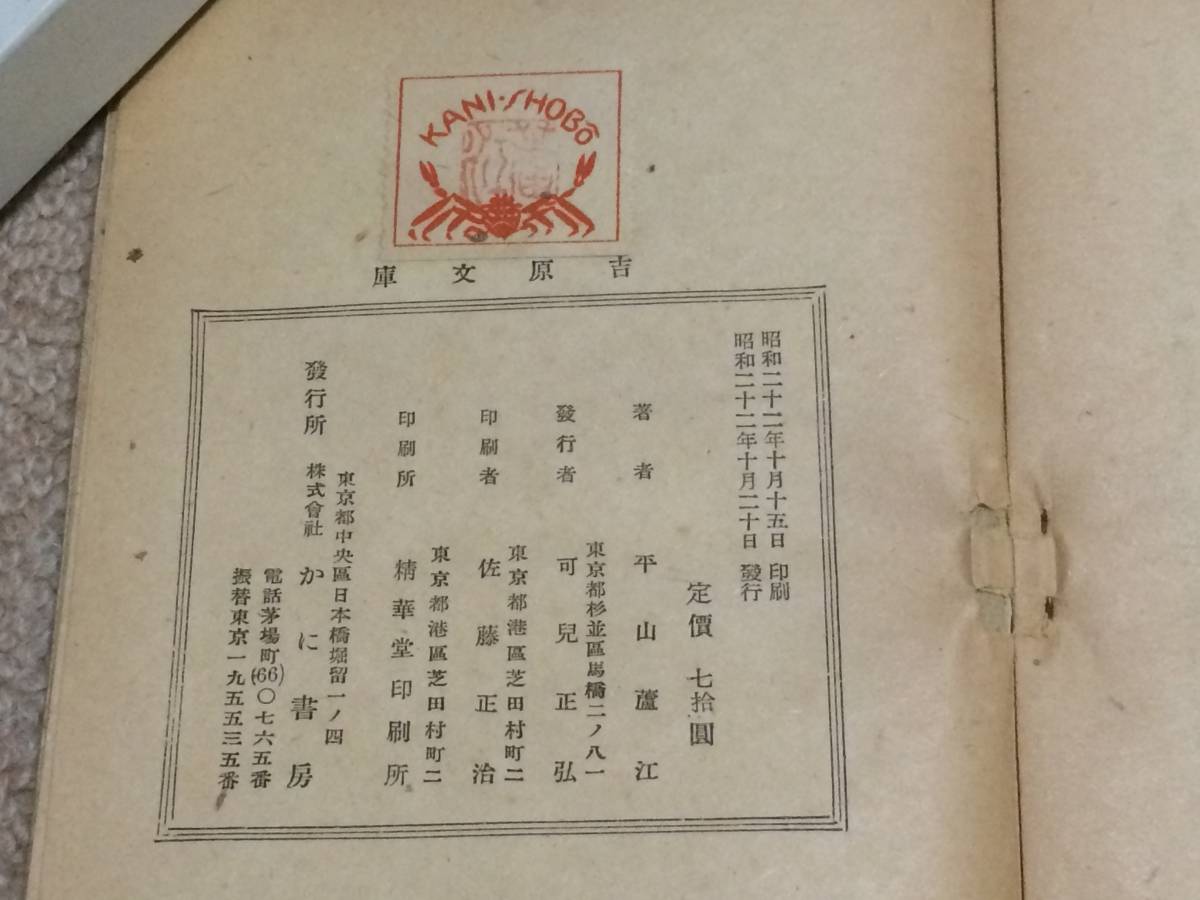 KANI・SHOBŌ
吉原文庫
昭和二十二年十月十五日 印刷
昭和二十二年十月二十日 發行
定價 七拾圓
著者 平山蘆江
東京都杉並區馬橋二ノ八一
發行者 可兒正弘
東京都港區芝田村町二
印刷者 佐藤正治
東京都港區芝田村町二
印刷所 精華堂印刷所
東京都中央區日本橋堀留一ノ四
發行所 株式會社 かに書房
電話茅場町(66)〇七六五番
振替東京一九五五三五番